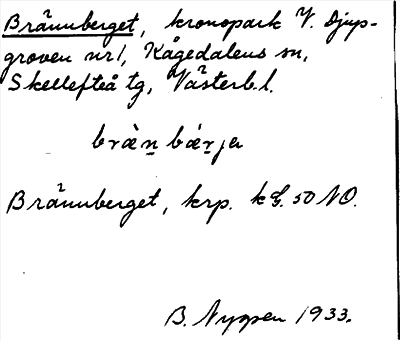 Brännberget, kronopark V. Djup-
groven nr 1, Kågedalens sn,
Skellefteå tg, Västerb. l.
brä̀n̲ bä́r̲ja
Brännberget, krp. k G. 50 NO.
B. Nygren 1933.